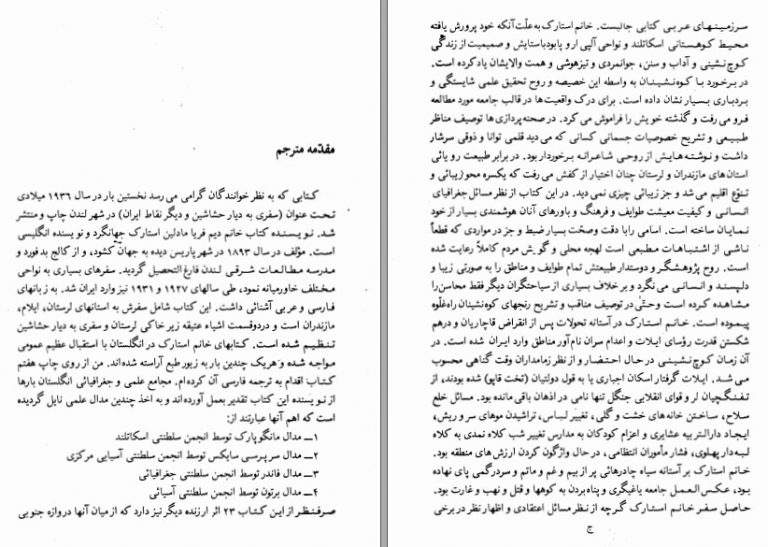 مقدّمه مترجم
کتابی که به نظر خوانندگان گرامی می‌رسد نخستین بار در سال ۱۹۳۶ میلادی
تحت عنوان (سفری به دیار حشاشین و دیگر نقاط ایران) در شهر لندن چاپ و منتشر
شد. نویسنده کتاب خانم دیم فریا مادلین استارک جهانگرد و نویسنده انگلیسی
است. مؤلف در سال ۱۸۹۳ در شهر پاریس دیده به جهان گشود، و از کالج بدفورد و
مدرسه مطالعات شرقی لندن فارغ التحصیل گردید. سفرهای بسیاری به نواحی
مختلف خاورمیانه نمود، طی سالهای ۱۹۲۷ و ۱۹۳۱ نیز وارد ایران شد. به زبانهای
فارسی و عربی آشنائی داشت. این کتاب شامل سفرش به استانهای لرستان، ایلام،
مازندران است و در دو قسمت اشیاء عتیقه زیر خاکی لرستان و سفری به دیار حشاشین
تنظیم شده است. کتابهای خانم استارک در انگلستان با استقبال عظیم عمومی
مواجه شده و هریک چندین بار به زیور طبع آراسته شده‌اند. من از روی چاپ هفتم
کتاب اقدام به ترجمه فارسی آن کرده‌ام. مجامع علمی و جغرافیائی انگلستان بارها
از نویسنده این کتاب تقدیر بعمل آورده‌اند و به اخذ چندین مدال علمی نایل گردیده
است که اهم آنها عبارتند از:
۱ــ مدال مانگوپارک توسط انجمن سلطنتی اسکاتلند
۲ــ مدال سرپرسی سایکس توسط انجمن سلطنتی آسیایی مرکزی
۳ــ مدال فاندر توسط انجمن سلطنتی جغرافیائی
۴ــ مدال برتون توسط انجمن سلطنتی آسیائی
صرفنظر از این کتاب ۲۳ اثر ارزنده دیگر نیز دارد که از میان آنها دروازه جنوبی
سرزمینهای عربی کتابی جالبست. خانم استارک به علّت آنکه خود پرورش یافته
محیط کوهستانی اسکاتلند و نواحی آلپی اروپا بود با ستایش و صمیمیت از زندگی
کوچ‌نشینی و آداب و سنن، جوانمردی و تیزهوشی و همت والایشان یاد کرده است.
در برخورد با کوه‌نشینان به واسطه این خصیصه و روح تحقیق علمی شایستگی و
بردباری بسیار نشان داده است. برای درک واقعیت‌ها در قالب جامعه مورد مطالعه
فرو می‌رفت و گذشته خویش را فراموش می‌کرد. در صحنه‌پردازی‌ها توصیف مناظر
طبیعی و تشریح خصوصیات جسمانی کسانی که می‌دید قلمی توانا و ذوقی سرشار
داشت و نوشته‌هایش از روحی شاعرانه برخوردار بود. در برابر طبیعت رویائی
استان‌های مازندران و لرستان چنان اختیار از کفش می‌رفت که یکسره محو زیبائی و
تنوّع اقلیم می‌شد و جز زیبائی چیزی نمی‌دید. در این کتاب از نظر مسائل جغرافیای
انسانی و کیفیت معیشت طوایف و فرهنگ و باورهای آنان هوشمندی بسیار از خود
نمایان ساخته است. اسامی را با دقت و صحّت بسیار ضبط و جز در مواردی که قطعاً
ناشی از اشتباهات مطبعی است لهجه محلی و گویش مردم کاملاً رعایت شده
است. روح پژوهشگر و دوستدار طبیعتش تمام طوایف و مناطق را به صورتی زیبا و
دلپسند و انسانی می‌نگرد و برخلاف بسیاری از سیاحتگران دیگر فقط محاسن را
مشاهده کرده است و حتّی در توصیف مناقب و تشریح رنجهای کوه‌نشینان راه غلّوه
پیموده است. خانم استارک در آستانه تحولات پس از انقراض قاجاریان و درهم
شکستن قدرت رؤسای ایلات و اعدام سران نام‌آور مناطق وارد ایران شده است. در
آن زمان کوچ‌نشینی در حال احتضار و از نظر زمامداران وقت گناهی محسوب
می‌شد. ایلات گرفتار اسکان اجباری یا به قول دولتیان (تخت قاپو) شده بودند، از
تفنگچیان لر و قوای انقلابی جنگل تنها نامی در اذهان باقی مانده بود. مسائل خلع
سلاح، ساختن خانه‌های خشت و گلی، تغییر لباس، تراشیدن موهای سر و ریش،
ایجاد دارالتربیه عشایری و اعزام کودکان به مدارس تغییر شب کلاه نمدی به کلاه
لبه‌دار پهلوی، فشار مأموران انتظامی، در حال واژگون کردن ارزش‌های منطقه بود.
خانم استارک بر آستانه سیاه چادرهائی پر از بیم و غم و ماتم و سردرگمی پای نهاده
بود، عکس‌العمل جامعه یاغیگری و پناه بردن به کوهها و قتل و نهب و غارت بود.
حاصل سفر خانم استارک گرچه از نظر مسائل اعتقادی و اظهار نظر در برخی
ج